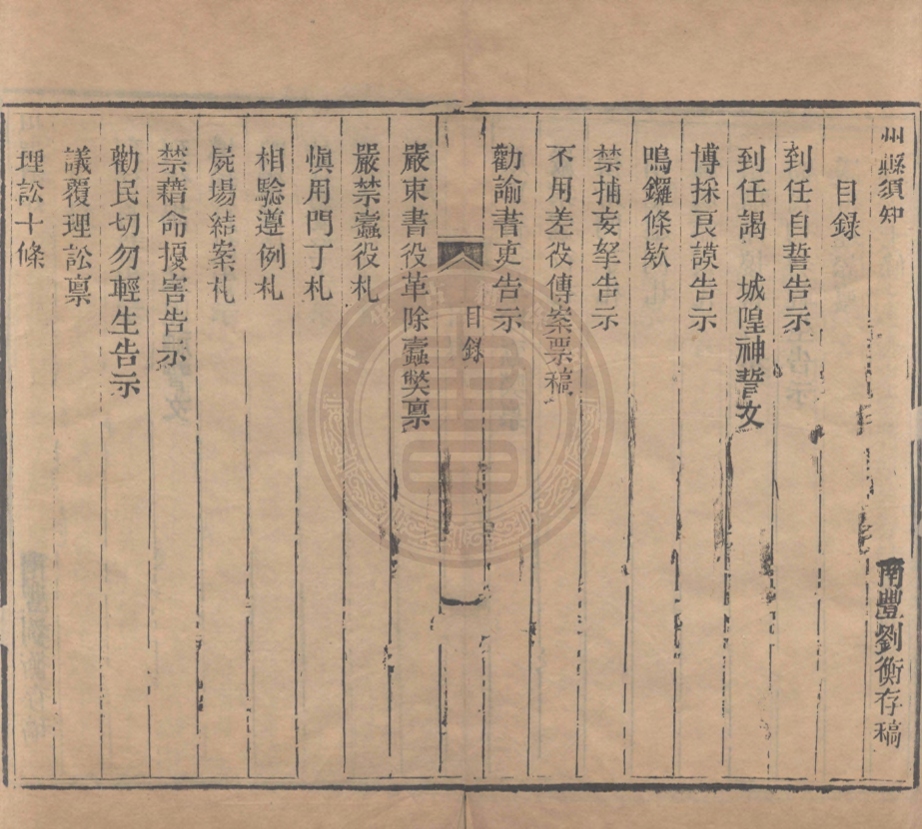 州縣須知
南豐劉衡存稿
目録
到任自誓告示
到任謁　城隍神誓文
博採良謨告示
鳴鑼條欵
禁捕妄拏告示
不用差役傳案票稿
勸諭書吏告示
目録
嚴束書役革除蠧獘禀
嚴禁蠧役札
慎用門丁札
相驗遵例札
屍場結案札
禁藉命擾害告示
勸民切勿輕生告示
議覆理訟禀
理訟十條